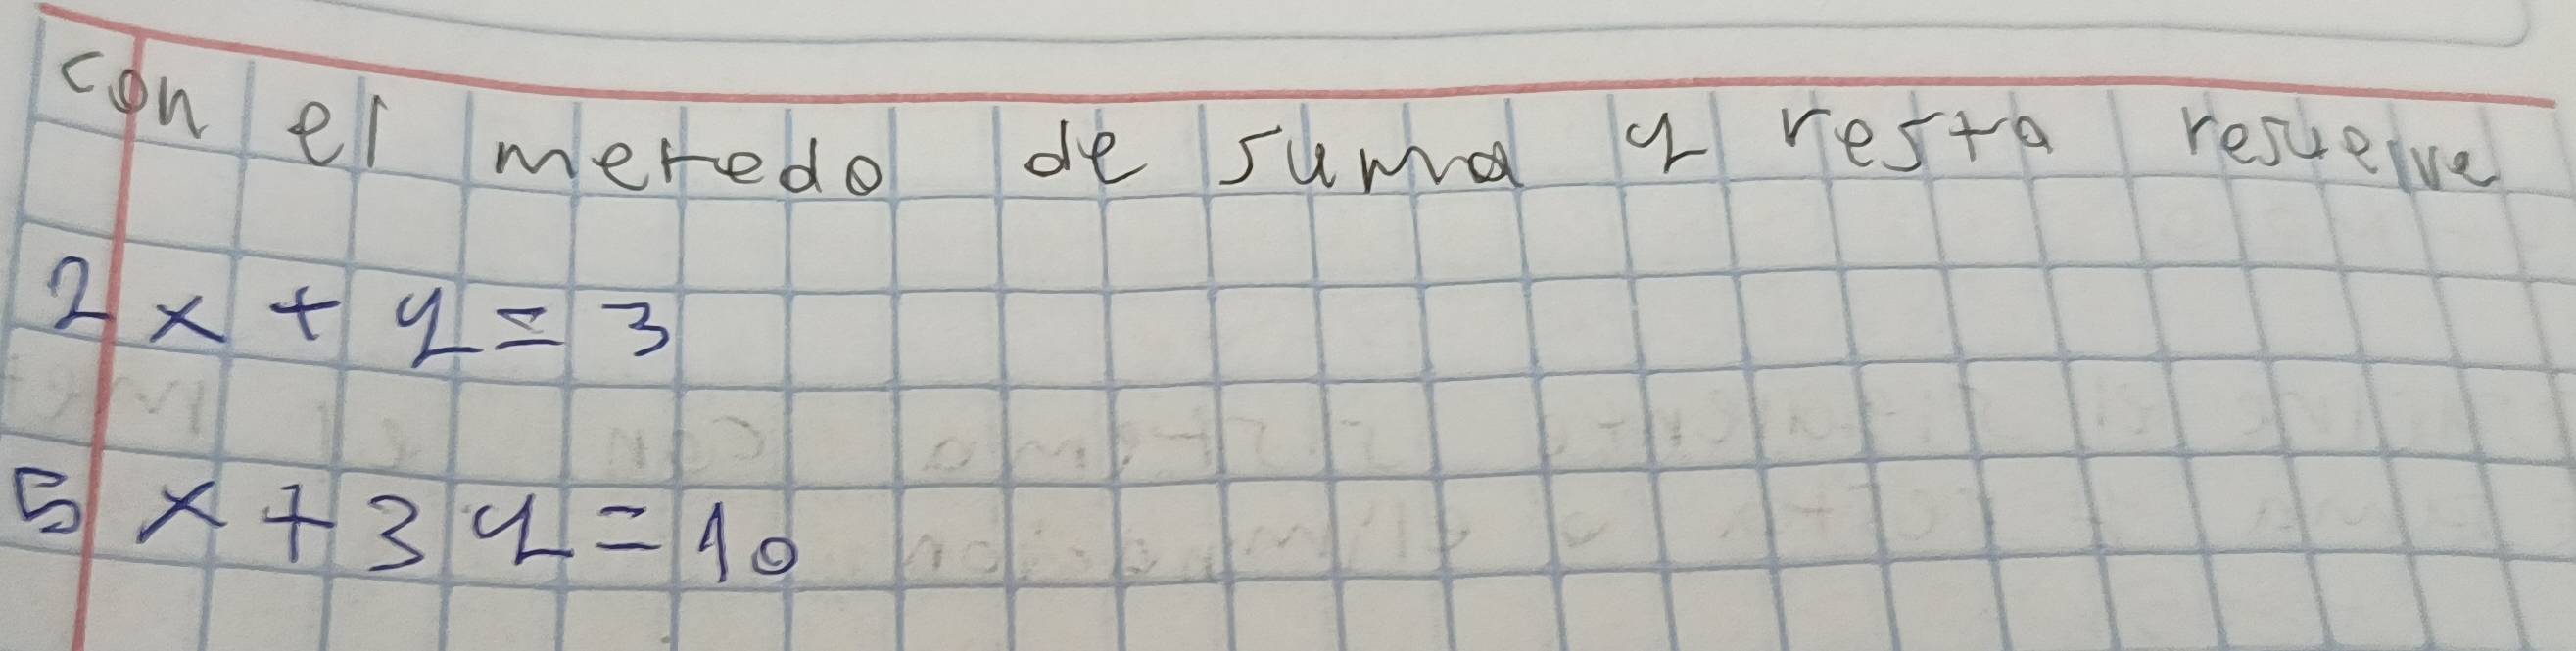 con el metedo de suma y resta resuelve
2x + y = 3
5x + 3y = 10